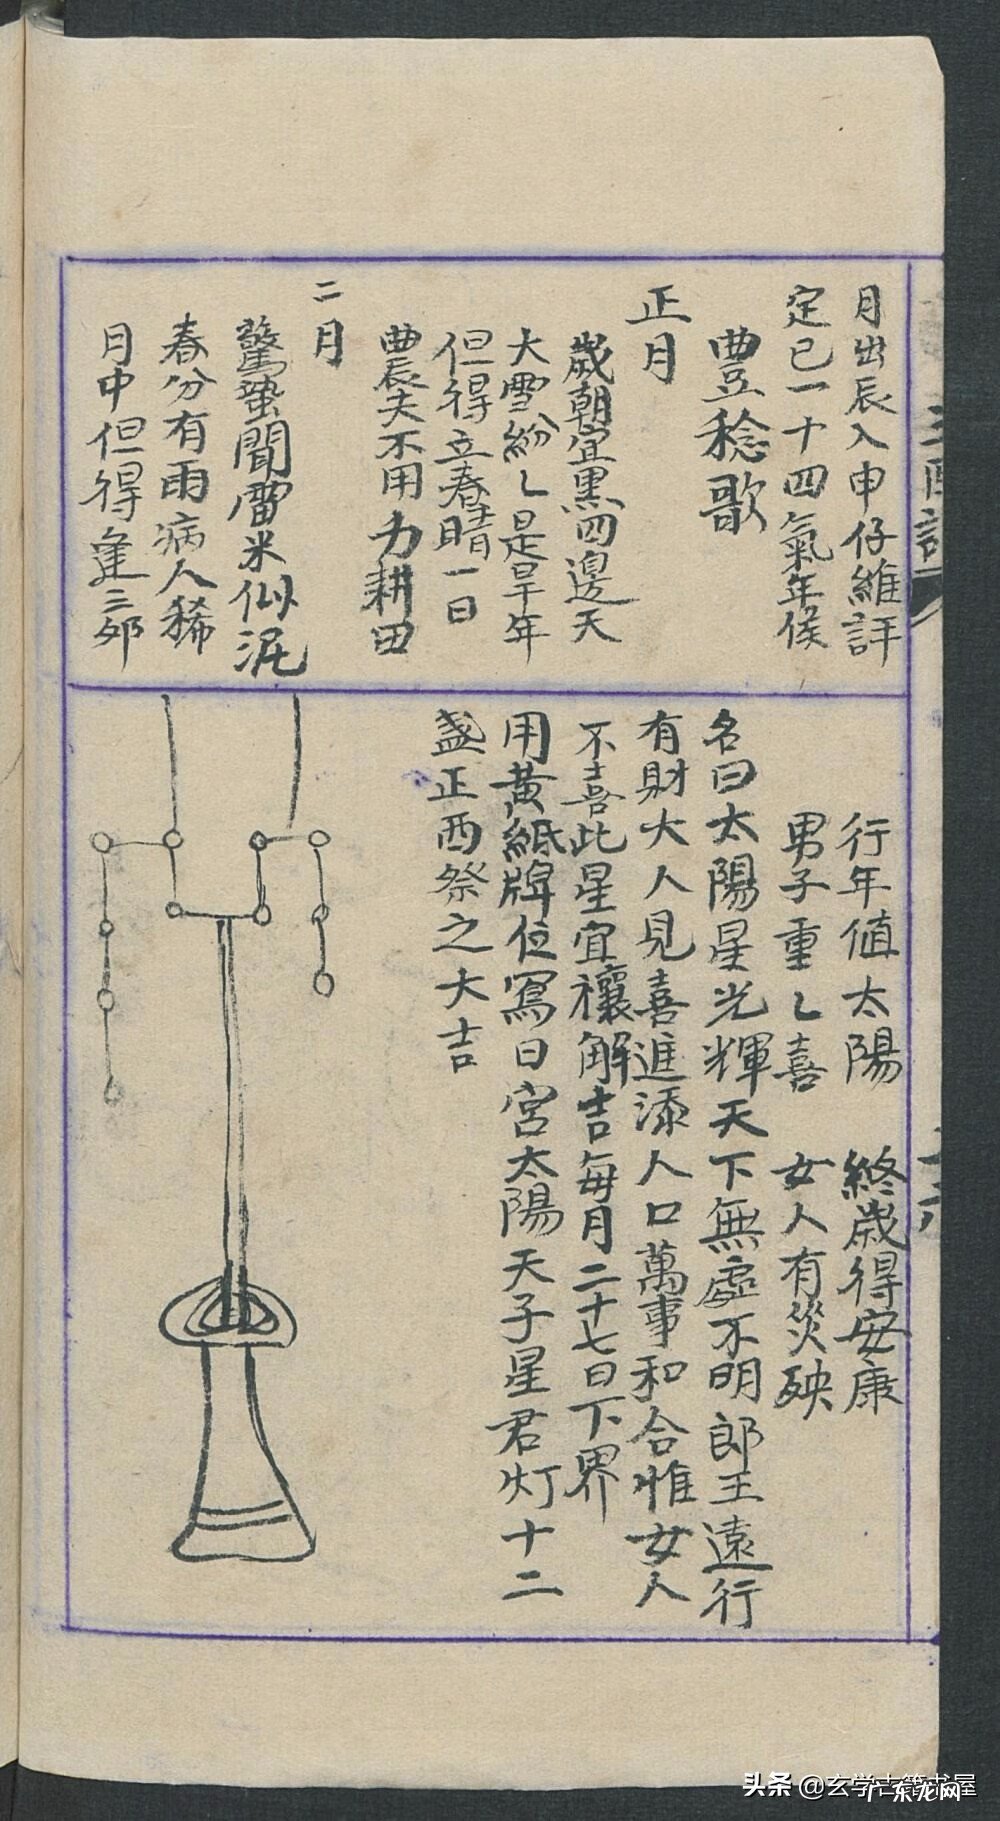 月出辰入申仔維詳
定已一十四氣年候
豊稔歌
正月
歲朝宜黑四邊天
大雪紛〻是旱年
但得立春晴一日
農夫不用力耕田
二月
驚蟄聞雷米似泥
春分有雨病人稀
月中但得逢三夘
行年值太陽 終歲得安康
男子重〻喜 女人有災殃
名曰太陽星光輝天下無處不明郎王遠行
有財大人見喜進添人口萬事和合惟女人
不喜此星宜禳解吉每月二十七日下界
用黃紙牌位寫日宮太陽天子星君灯十二
盞正西祭之大吉
头条 @玄学古籍书屋
广东龙网